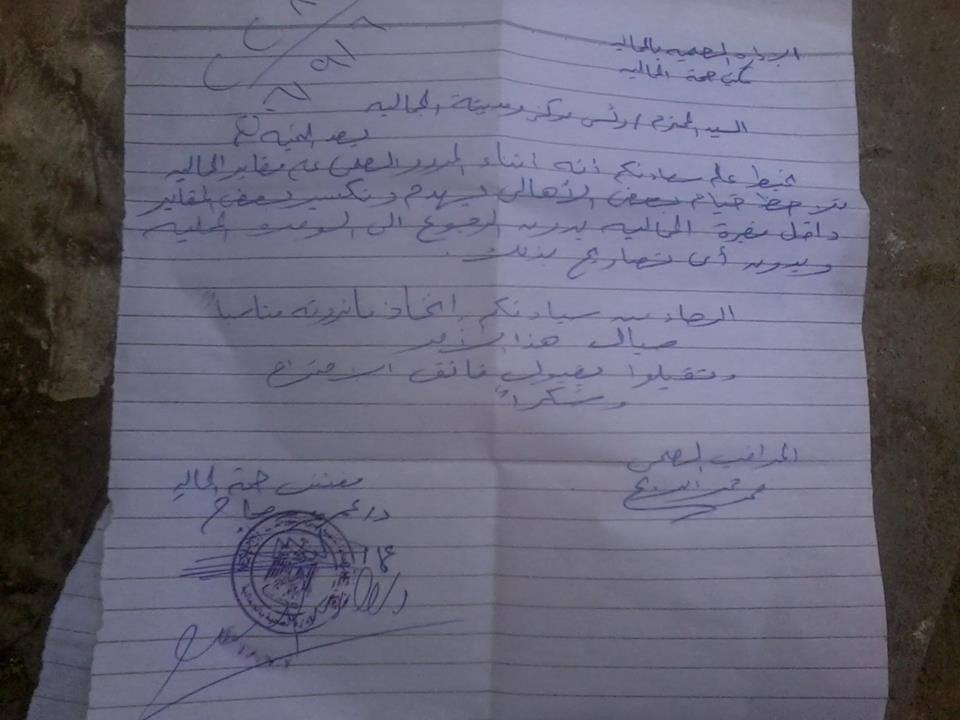 الإدارة الصحية بالجمالية
مكتب صحة الجمالية
السيد المحترم / رئيس مركز ومدينة الجمالية
بعد التحية
نحيط علم سيادتكم أنه أثناء المرور الصحى على مقابر الجمالية
تلاحظ قيام بعض الأهالى بهدم وتكسير بعض المقابر
داخل مقبرة الجمالية بدون الرجوع الى الوحدة المحلية
وبدون أى تصاريح بذلك.
الرجاء من سيادتكم اتخاذ ما ترونه مناسباً
حيال هذا الأمر
وتفضلوا بقبول فائق الاحترام
وشكراً
المراقب الصحى
مفتش صحة الجمالية